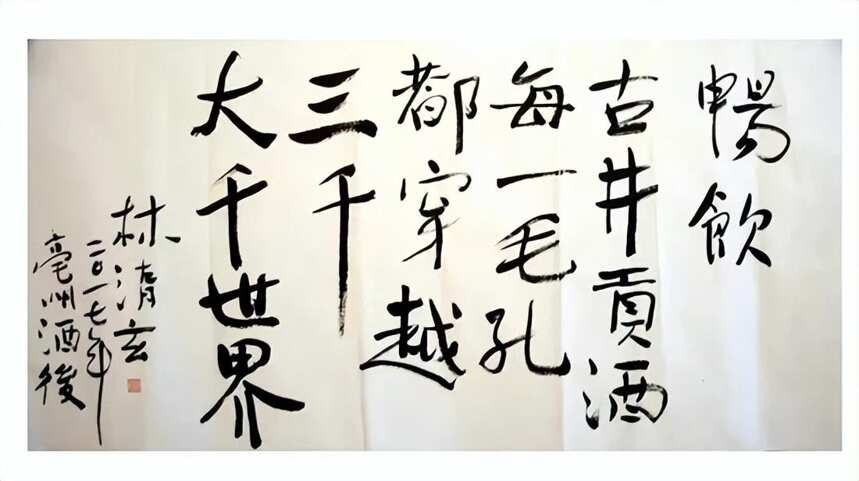 暢飲
古井貢酒
每一毛孔
都穿越
三千
大千世界
林清玄
二〇一七年
亳州酒後